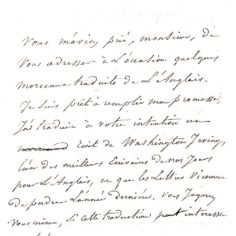 Vous m'aviez prié, monsieur, de
vous adresser à l'occasion quelques
morceaux traduits de l'Anglais.
Je suis prêt à remplir ma promesse;
J'ai traduit à votre intention un
Ecrit de Washington Irving,
l'un des meilleurs Ecrivains de nos Jours
pour l'Anglais, ce que les Lettres Viennent
de perdre l'année dernière. Vous Jugerez
vous même, si cette traduction peut intéresser